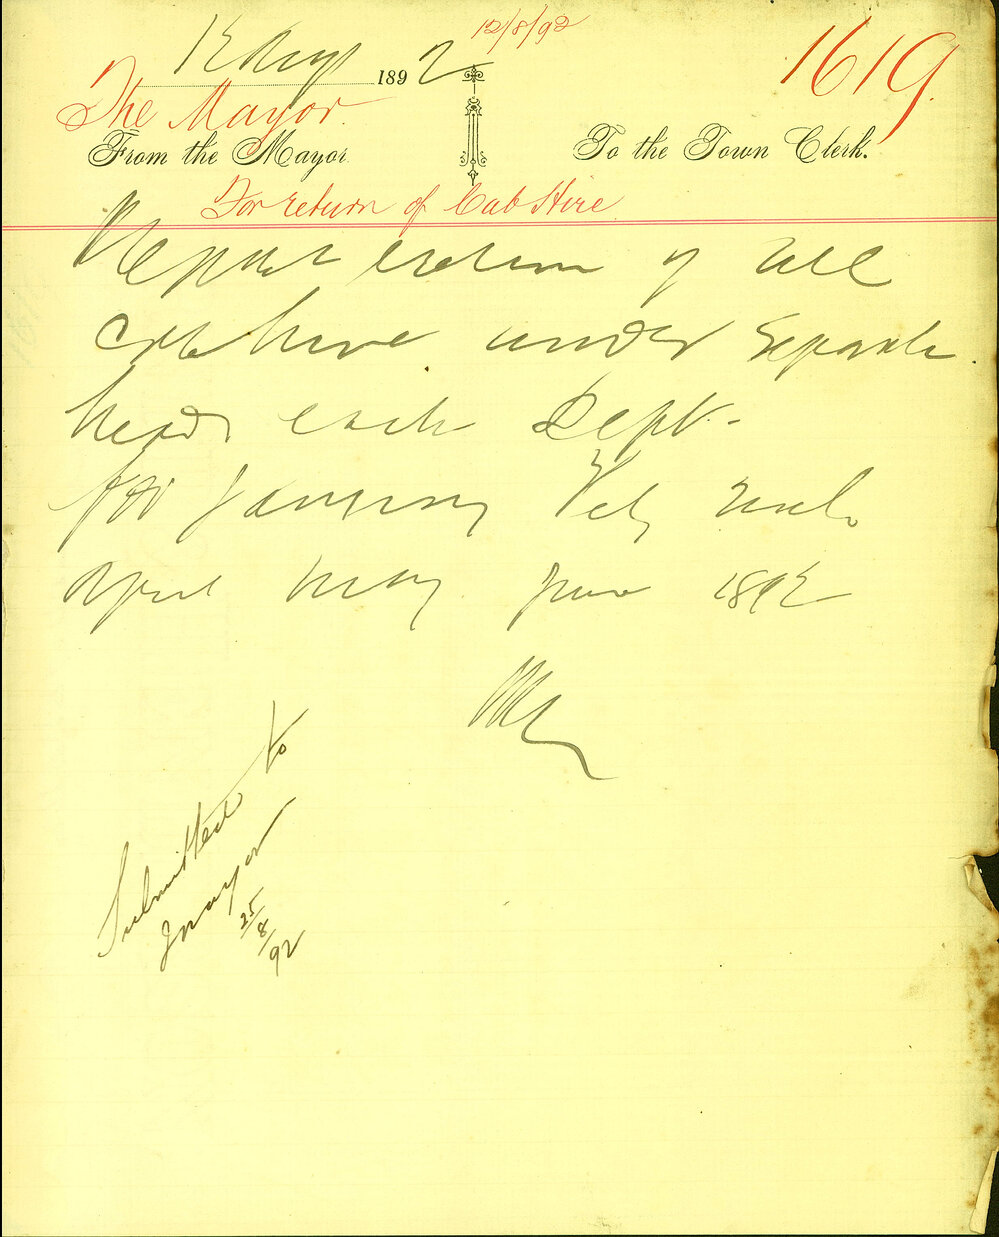 12/8/92
1619
12 Aug 1892
The Mayor.
From the Mayor. To the Town Clerk.
For return of Cab Hire
return of all
cab hire under separate
heads each Dept.
for January Feby March
April May June 1892
Submitted to
Mayor
25/8/92